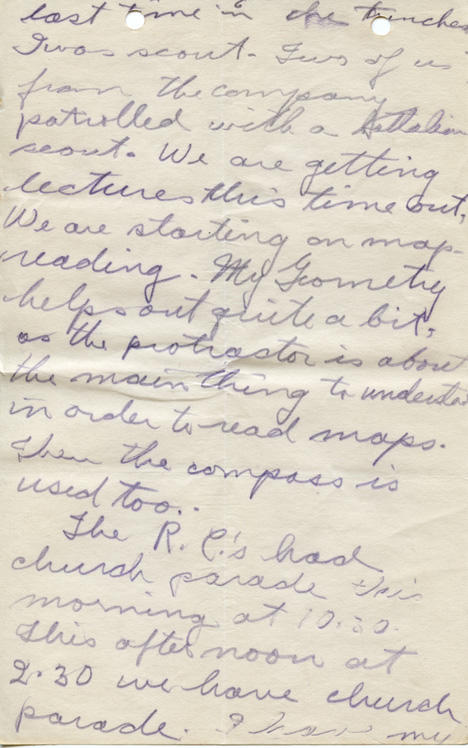 last time in the trenches
I was scout. Two of us
from the company
patrolled with a Battalion
scout. We are getting
lectures this time out,
We are starting on map-
reading. My Geometry
helps out quite a bit,
as the protractor is about
the main thing to understand
in order to read maps.
Then the compass is
used too..
The R. C.'s had
church parade this
morning at 10.30.
This afternoon at
2.30 we have church
parade. I have my